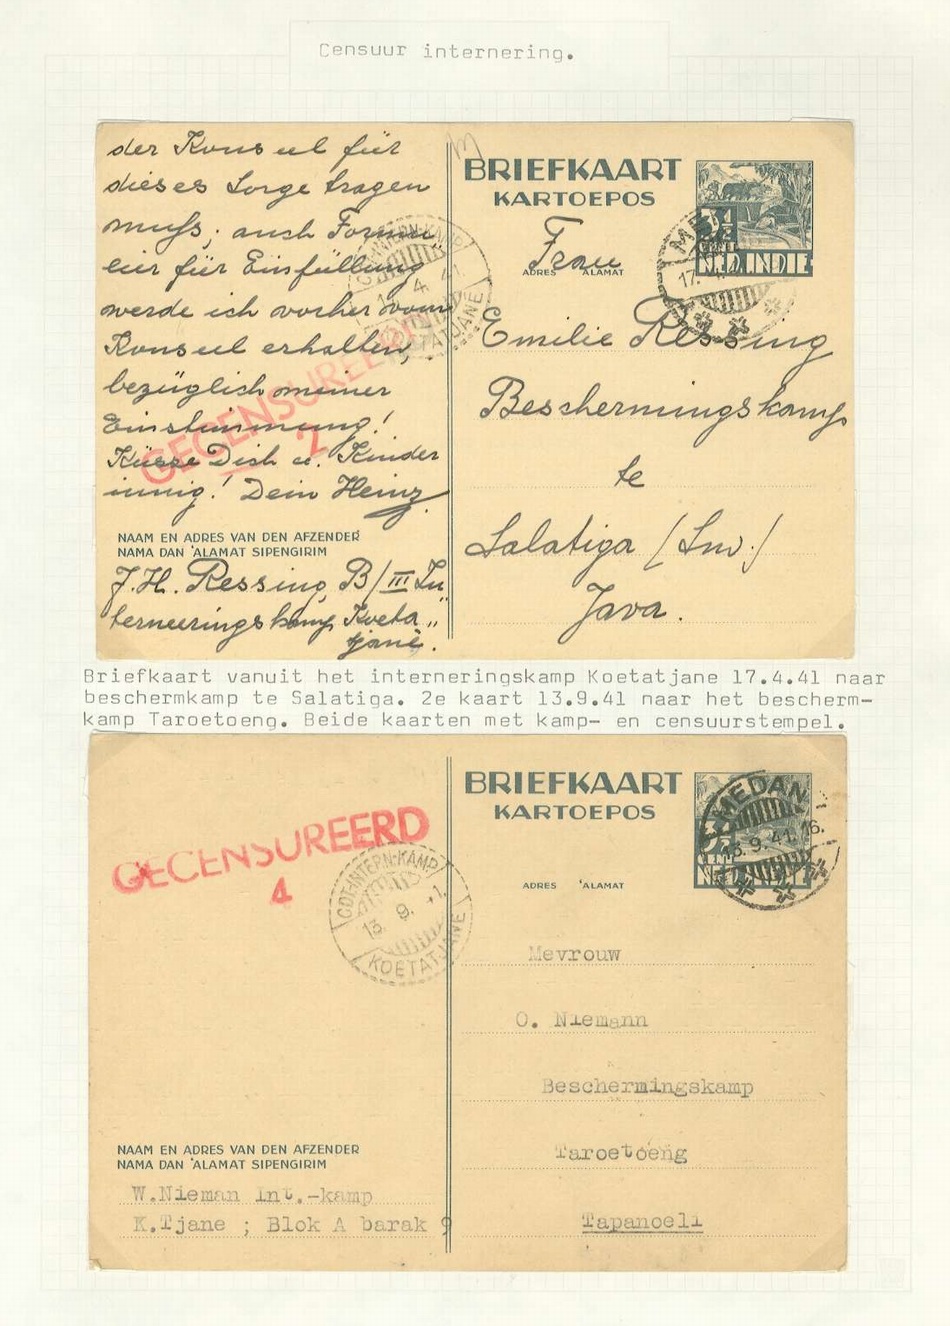 Censuur internering.
der Konseul für
dieses Sorge tragen
muß; auch Formu„
lier für Einfüllung
werde ich vorher vom
Konseul erhalten,
bezüglich meiner
Einstimmung!
Küsse Dich u. Kinder
innig! Dein Heinz
NAAM EN ADRES VAN DEN AFZENDER
NAMA DAN 'ALAMAT SIPENGIRIM
J.H. Ressing, B/III In„
terneeringskamp Koeta„
tjané.
GECENSUREERD
2
KOETATJANE
BRIEFKAART
KARTOEPOS
3½
CENT
NED. INDIE
17.
ADRES 'ALAMAT
Frau
Emilie Ressing
Beschermingskamp
te
Salatiga
Java.
Briefkaart vanuit het interneringskamp Koetatjane 17.4.41 naar
beschermkamp te Salatiga. 2e kaart 13.9.41 naar het bescherm-
kamp Taroetoeng. Beide kaarten met kamp- en censuurstempel.
GECENSUREERD
4
CDT-INTERN-KAMP
13. 9. 41.
KOETATJANE
BRIEFKAART
KARTOEPOS
MEDAN
3.9.41.16.
NED. INDIE
ADRES 'ALAMAT
Mevrouw
O. Niemann
Beschermingskamp
Taroetoeng
Tapanoeli
NAAM EN ADRES VAN DEN AFZENDER
NAMA DAN 'ALAMAT SIPENGIRIM
W.Nieman Int.-kamp
K.Tjane ; Blok A barak 9